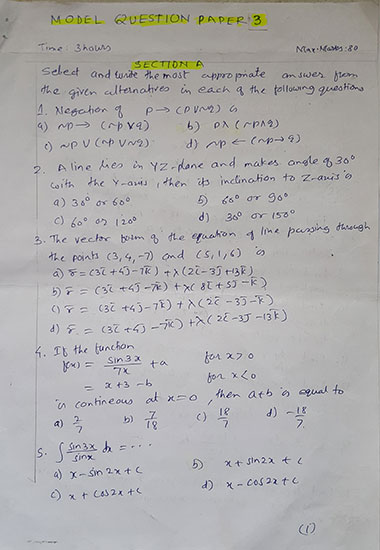 MODEL QUESTION PAPER 3
Time: 3hours Max. Marks: 80
SECTION A
Select and write the most appropriate answer from
the given alternatives in each of the following questions
1. Negection of p → (p∨~q) is
a) ~p → (~p∨q) b) p∧(~p∧q)
c) ~p∨(~p∨~q) d) ~p ← (~p→q)
2. A line lies in YZ-plane and makes angle of 30°
with the Y-axis, then its inclination to Z-axis is
a) 30° or 60° b) 60° or 90°
c) 60° or 120° d) 30° or 150°
3. The vector form of the equation of line passing through
the points (3, 4, -7) and (5, 1, 6) is
a) r̄ = (3ī + 4j̄ - 7k̄) + λ(2ī - 3j̄ + 13k̄)
b) r̄ = (3ī + 4j̄ - 7k̄) + λ(8ī + 5j̄ - k̄)
c) r̄ = (3ī + 4j̄ - 7k̄) + λ(2ī - 3j̄ - k̄)
d) r̄ = (3ī + 4j̄ - 7k̄) + λ(2ī - 3j̄ - 13k̄)
4. If the function
f(x) = sin3x/7x + a for x > 0
= x + 3 - b for x < 0
is contineous at x = 0, then a+b is equal to
a) 2/7 b) 7/18 c) 18/7 d) -18/7
5. ∫ sin3x/sinx dx = ...
a) x - sin2x + c b) x + sin2x + c
c) x + cos2x + c d) x - cos2x + c
(1)